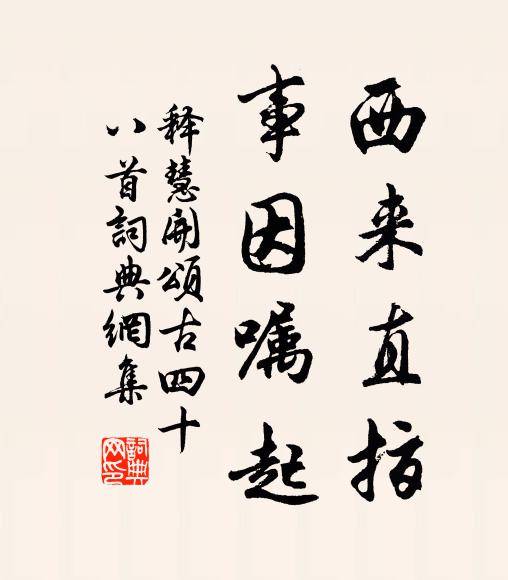 西来直指
事因嘱起
释慧开颂古四十
八首詞典網集
詞典网印